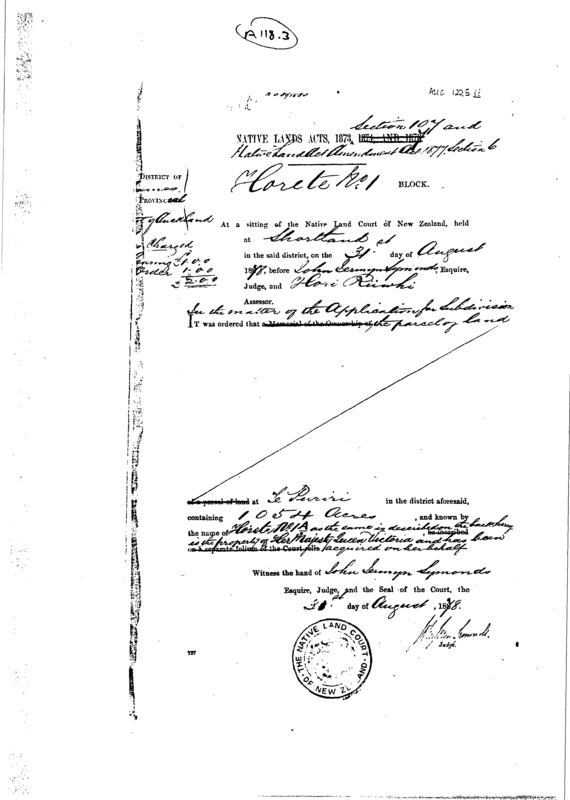 A 118.3
AUC 1225 ii
Section 107 and
NATIVE LANDS ACTS, 1873, 1874, AND 1878
Native Land Act Amendment Act 1877, Section 6
Horete No 1 BLOCK.
DISTRICT OF
PROVINCIAL
of Auckland
Charged
Hearing £1.0.0
Order 1.0.0
£2.0.0
At a sitting of the Native Land Court of New Zealand, held
at Shortland at
in the said district, on the 31st day of August
1878, before John Jermyn Symonds, Esquire,
Judge, and Hori Riwhi
Assessor.
In the matter of the Application for Subdivision
IT was ordered that a Memorial of the Ownership of the parcel of land
of a parcel of land at Te Puriri in the district aforesaid,
containing 1054 Acres, and known by
the name of Horete No 1A as the same is described on the back hereof
be inscribed
is the property of Her Majesty Queen Victoria and has been
on a separate folium of the Court rolls acquired on her behalf
Witness the hand of John Jermyn Symonds
Esquire, Judge, and the Seal of the Court, the
31st day of August, 1878.
Judge.
THE NATIVE LAND COURT OF NEW ZEALAND
727